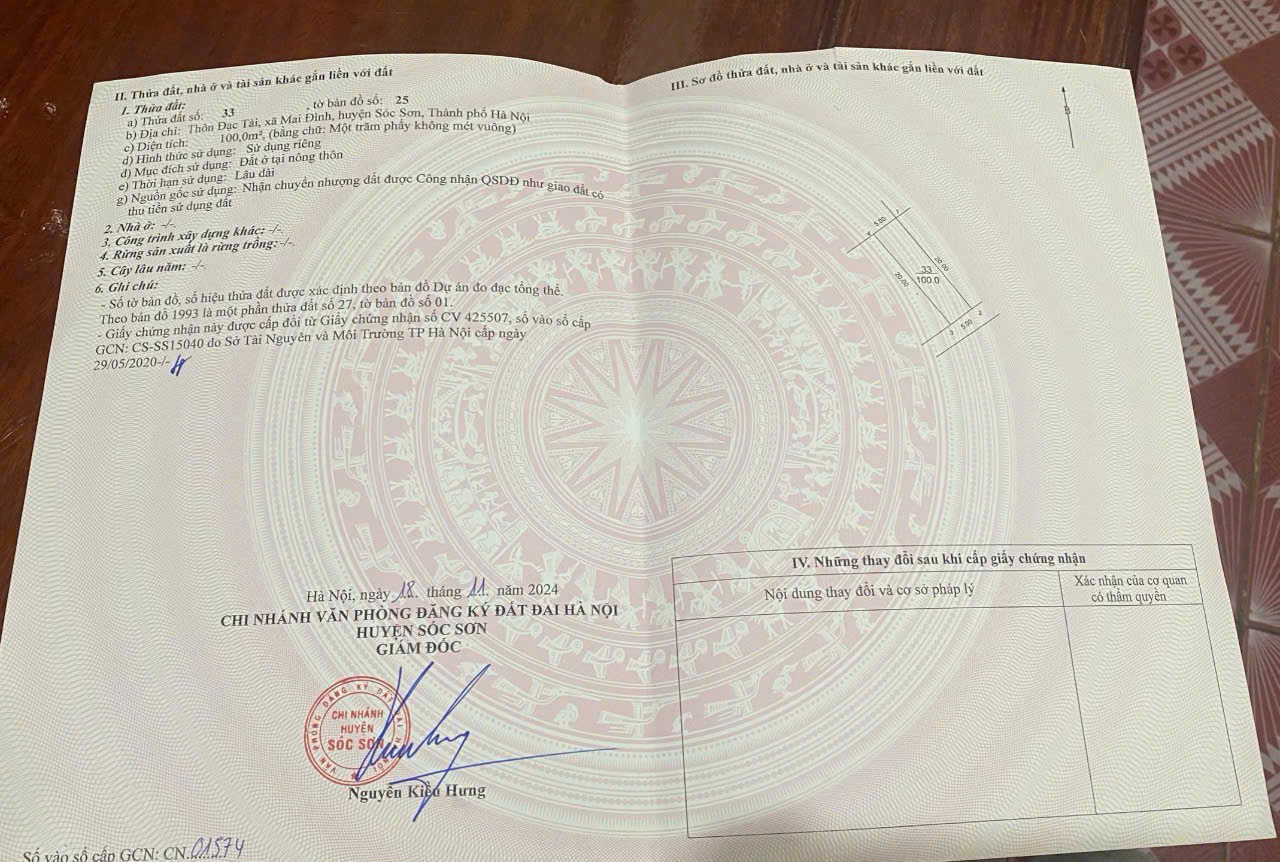 II. Thửa đất, nhà ở và tài sản khác gắn liền với đất
1. Thửa đất:
a) Thửa đất số: 33 , tờ bản đồ số: 25
b) Địa chỉ: Thôn Đạc Tài, xã Mai Đình, huyện Sóc Sơn, Thành phố Hà Nội
c) Diện tích: 100,0m², (bằng chữ: Một trăm phẩy không mét vuông)
d) Hình thức sử dụng: Sử dụng riêng
đ) Mục đích sử dụng: Đất ở tại nông thôn
e) Thời hạn sử dụng: Lâu dài
g) Nguồn gốc sử dụng: Nhận chuyển nhượng đất được Công nhận QSDĐ như giao đất có
thu tiền sử dụng đất
2. Nhà ở: -/-.
3. Công trình xây dựng khác: -/-.
4. Rừng sản xuất là rừng trồng: -/-.
5. Cây lâu năm: -/-.
6. Ghi chú:
- Số tờ bản đồ, số hiệu thửa đất được xác định theo bản đồ Dự án đo đạc tổng thể.
Theo bản đồ 1993 là một phần thửa đất số 27, tờ bản đồ số 01.
- Giấy chứng nhận này được cấp đổi từ Giấy chứng nhận số CV 425507, số vào sổ cấp
GCN: CS-SS15040 do Sở Tài Nguyên và Môi Trường TP Hà Nội cấp ngày
29/05/2020-/-
Hà Nội, ngày 18. tháng 11. năm 2024
CHI NHÁNH VĂN PHÒNG ĐĂNG KÝ ĐẤT ĐAI HÀ NỘI
HUYỆN SÓC SƠN
GIÁM ĐỐC
VĂN PHÒNG ĐĂNG KÝ ĐẤT ĐAI HÀ NỘI
CHI NHÁNH
HUYỆN
SÓC SƠN
Nguyễn Kiều Hưng
Số vào sổ cấp GCN: CN.01574
III. Sơ đồ thửa đất, nhà ở và tài sản khác gắn liền với đất
B
5.00 1
4
20.00
33
100.0
20.00
2
3 5.00
IV. Những thay đổi sau khi cấp giấy chứng nhận
Nội dung thay đổi và cơ sở pháp lý
Xác nhận của cơ quan
có thẩm quyền